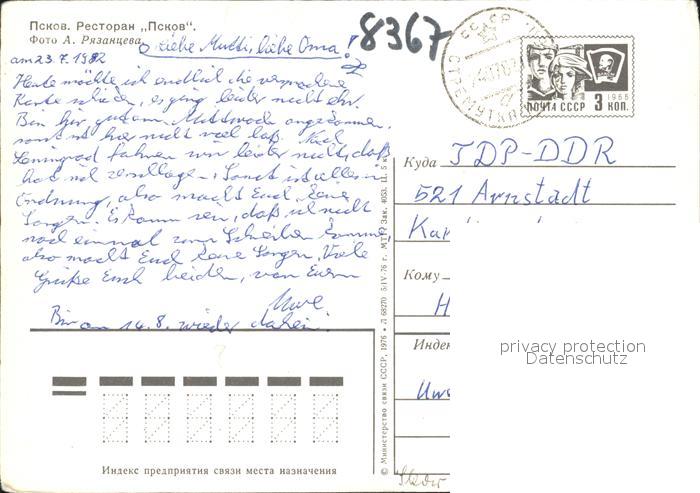 Псков. Ресторан „Псков“.
Фото А. Рязанцева
8367
am 23.7.1982
Liebe Mutti, liebe Oma!
Heute möchte ich endlich die versprochene
Karte schicken, es ging leider nicht eher.
Bin hier gut am Mittwoch angekommen,
sonst ist hier nicht viel los. Nach
Leningrad fahren wir leider nicht, daß
hat sich zerschlagen. Sonst ist alles in
Ordnung, also macht Euch keine
Sorgen. Es kann sein, daß ich nicht
noch einmal zum Schreiben komme,
also macht Euch keine Sorgen. Viele
Grüße Euch beiden, von Eurem
Uwe
Bin am 14.8. wieder daheim.
СССР
ПОЧТА СССР 3 КОП.
1966
Куда TDP-DDR
521 Arnstadt
Кому
H
Индек
Uwe
© Министерство связи СССР, 1976 • Л 68270 5/IV-76 г. МТГ Зак. 4053. Ц. 5 к.
Индекс предприятия связи места назначения
privacy protection
Datenschutz